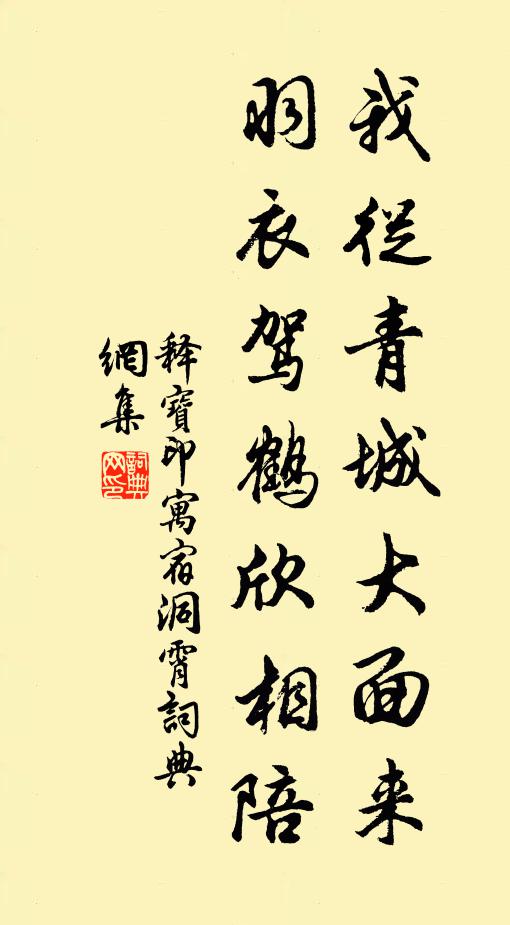 我從青城大面来
羽衣駕鶴欣相陪
释寶印寓宿洞霄詞典
網集
詞典
网印